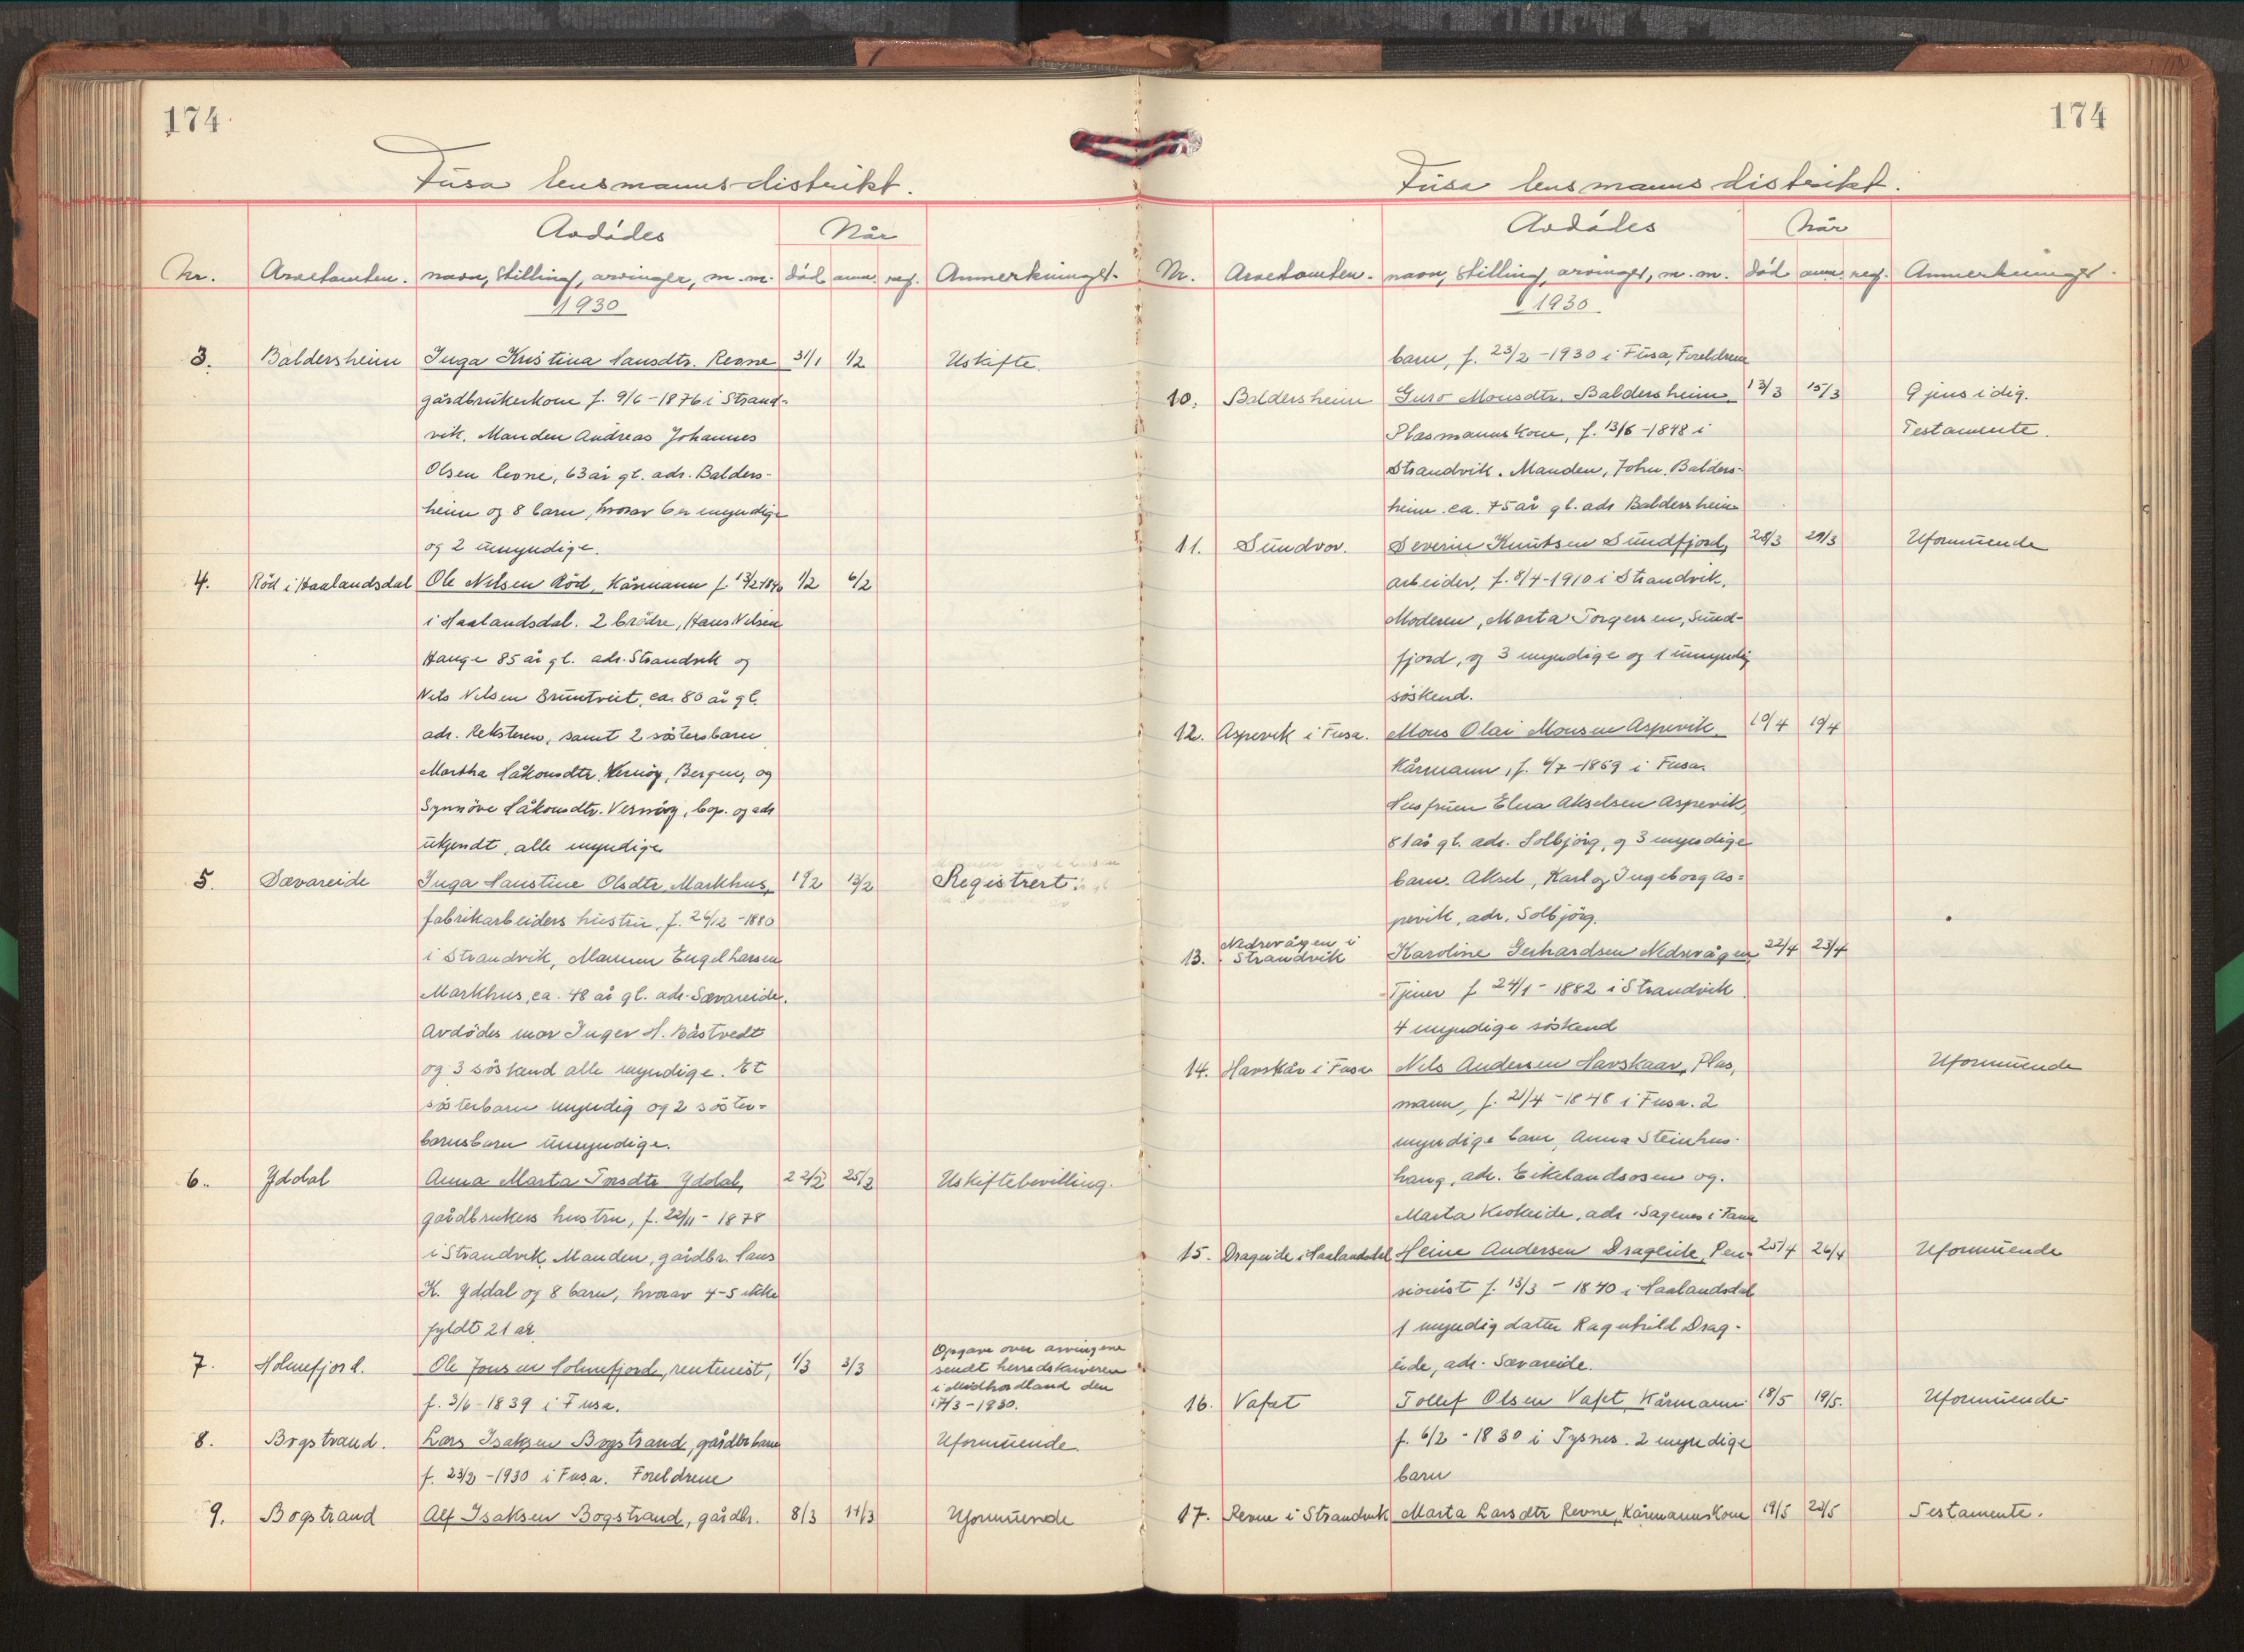 174
Fusa lensmannsdistrikt.
Avdödes
Når
Nr. Arvetomten. navn, stilling, arvinger, m.m. död anm. reg. Anmerkninger.
1930
3. Baldersheim Inga Kristina Hansdtr. Revne 31/1 1/2 Uskifte.
gårdbrukerkone f. 9/6-1876 i Strand-
vik. Manden Andreas Johannes
Olsen Revne, 63 år gl. adr. Balders-
heim og 8 barn, hvorav 6 er myndige
og 2 umyndige.
4. Röd i Haalandsdal Ole Nilsen Röd, Kårmann f. 13/2 1840 1/2 6/2
i Haalandsdal. 2 brödre, Hans Nilsen
Hauge 85 år gl. adr. Strandvik og
Nils Nilsen Bruntveit, ca. 80 år gl.
adr. Reksteren, samt 2 sösters barn
Martha Håkonsdtr. Vernöy, Bergen, og
Synnöve Håkonsdtr. Vernöy, bop. og adr
ukjendt, alle myndige
5. Sævareide Inga Haustine Olsdtr. Markhus, 19/2 13/2 Registrert.
fabrikarbeiders hustru, f. 26/12-1880
i Strandvik, Mannen Engel Larsen
Markhus, ca. 48 år gl. adr. Sævareide.
Avdödes mor Inger H. Båstvedt
og 3 söskend alle myndige. Et
sösterbarn myndig og 2 söster-
barnsbarn umyndige.
6. Yddal Anna Marta Larsdtr Yddal, 22/2 25/2 Uskiftebevilling.
gårdbrukers hustru, f. 22/11-1878
i Strandvik. Manden, gårdbr. Hans
K. Yddal og 8 barn, hvorav 4-5 ikke
fyldt 21 år
7. Holmefjord. Ole Jonsen Holmefjord, rentenist, 1/3 3/3 Opgave over arvingene
sendt herredskriveren
i Midhordland den
17/3-1930.
f. 3/6-1839 i Fusa.
8. Bogstrand. Lars Isaksen Bogstrand, gårdbr barn Uformuende.
f. 23/2-1930 i Fusa. Foreldrene
9. Bogstrand Alf Isaksen Bogstrand, gårdbr. 8/3 11/3 Uformuende
174
Fusa lensmannsdistrikt.
Avdödes
Når
Nr. Arvetomten. navn, stilling, arvinger, m.m. död anm. reg. Anmerkninger.
1930
barn, f. 23/2-1930 i Fusa, Foreldrene
10. Baldersheim Guro Monsdtr. Baldersheim 13/3 15/3 Gjensidig.
Plasmannskone, f. 13/6-1848 i Testamente.
Strandvik. Manden, John Balders-
heim ca. 75 år gl. adr Baldersheim
11. Sundvor. Severin Knutsen Sundfjord, 28/3 29/3 Uformuende
arbeider, f. 8/4-1910 i Strandvik.
Moderen, Marta Torgersen, Sund-
fjord, og 3 myndige og 1 umyndig
söskend.
12. Aspevik i Fusa. Mons Olai Monsen Aspevik 10/4 19/4
Kårmann, f. 4/7-1869 i Fusa.
Husfruen Elna Akselsen Aspevik,
81 år gl. adr. Solbjörg, og 3 myndige
barn. Aksel, Karl og Ingeborg As-
pevik, adr. Solbjörg.
13. Nedrevågen i Strandvik Karoline Gerhardsen Nedrevågen 22/4 23/4
Tjener f 24/1-1882 i Strandvik
4 myndige söskend
14. Havskår i Fusa Nils Andersen Havskaar, Plas, Uformuende
mann, f. 21/4-1848 i Fusa. 2
myndige barn, Anna Steinhus-
haug, adr. Eikelandsosen og.
Marta Krokeide, adr. Sagenes i Fana
15. Drageide i Haalandsdal Heine Andersen Drageide, Pen- 25/4 26/4 Uformuende
sionist f. 13/3-1840 i Haalandsdal
1 myndig datter Ragnhild Drag-
eide, adr. Sævareide.
16. Vafat Tollef Olsen Vafet, Kårmann 18/5 19/5. Uformuende
f. 6/2-1830 i Tysnes. 2 myndige
barn
17. Revne i Strandvik Marta Larsdtr Revne, Kårmannskone 19/5 20/5 Testamente.